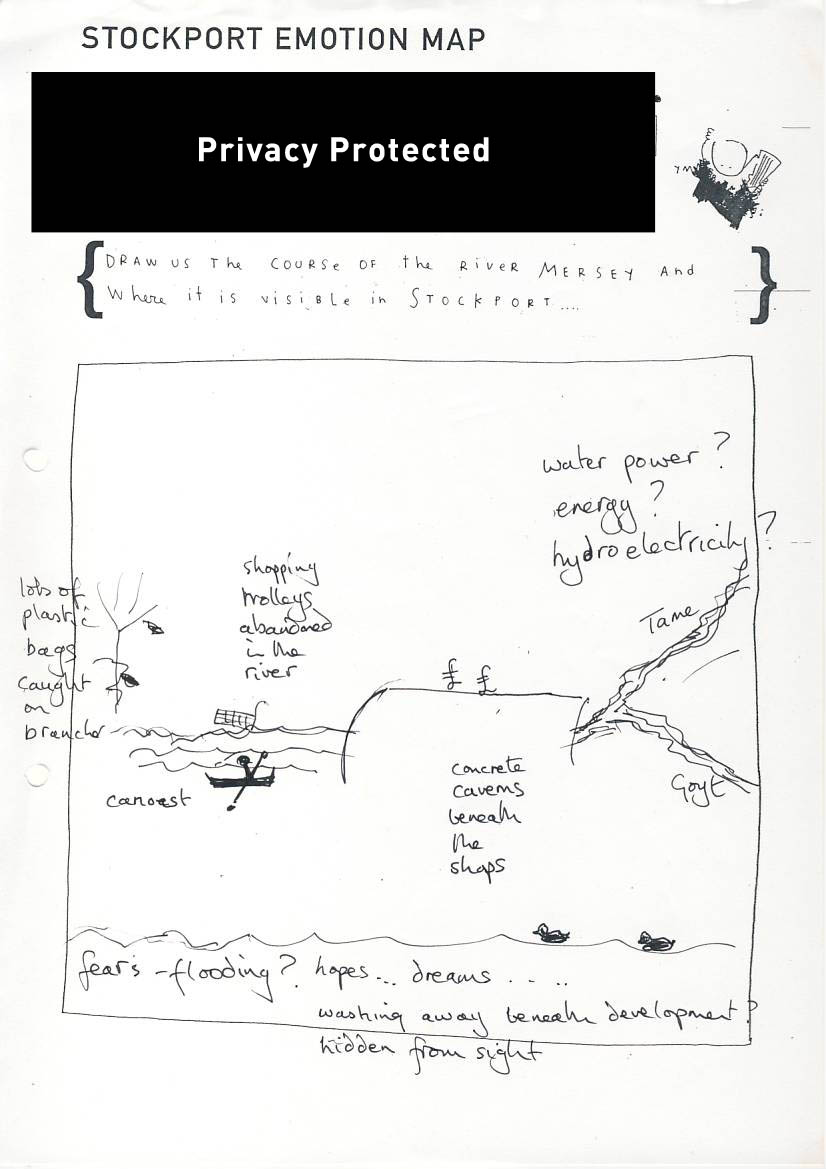 STOCKPORT EMOTION MAP
Privacy Protected
DRAW US The COURSe OF the RiVER MERSEY And
Where it is visiBLe in STOCKPORT....
water power?
energy?
hydroelectricity?
shopping
trolleys
abandoned
in the
river
lots of
plastic
bags
caught
on
branches
Tame
£ £
Goyt
concrete
caverns
beneath
the
shops
canoeist
fears - flooding? hopes... dreams.....
washing away beneath development?
hidden from sight